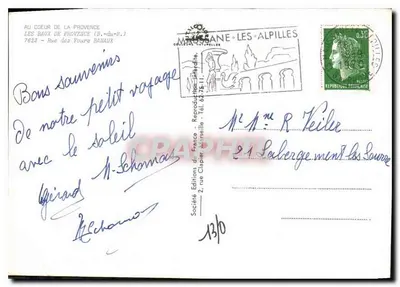 AU COEUR DE LA PROVENCE
LES BAUX DE PROVENCE (B.-du-R.)
7822 - Rue des Fours BANAUX
Bons souvenirs
de notre petit voyage
avec le soleil
Gérard
Société Editions de France - Reproduction interdite
2, rue Clapier Marseille - Tél. 62-75-11
ANE-LES-ALPILLES
0,30
REPUBLIQUE FRANÇAISE
Mr Mme R Veiler
21 Labergement les
13/0